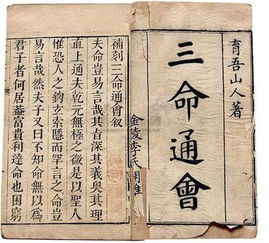 育吾山人著
三命通會
補刻三命通會叙
夫命豈易言哉其旨深其義奧其理
直上通夫乾元無極之微是以聖人
惟恐人之鈎玄索隱而罕言之命豈
易言哉然夫子又曰不知命無以爲
君子者何居葢富貴利達命也困窮